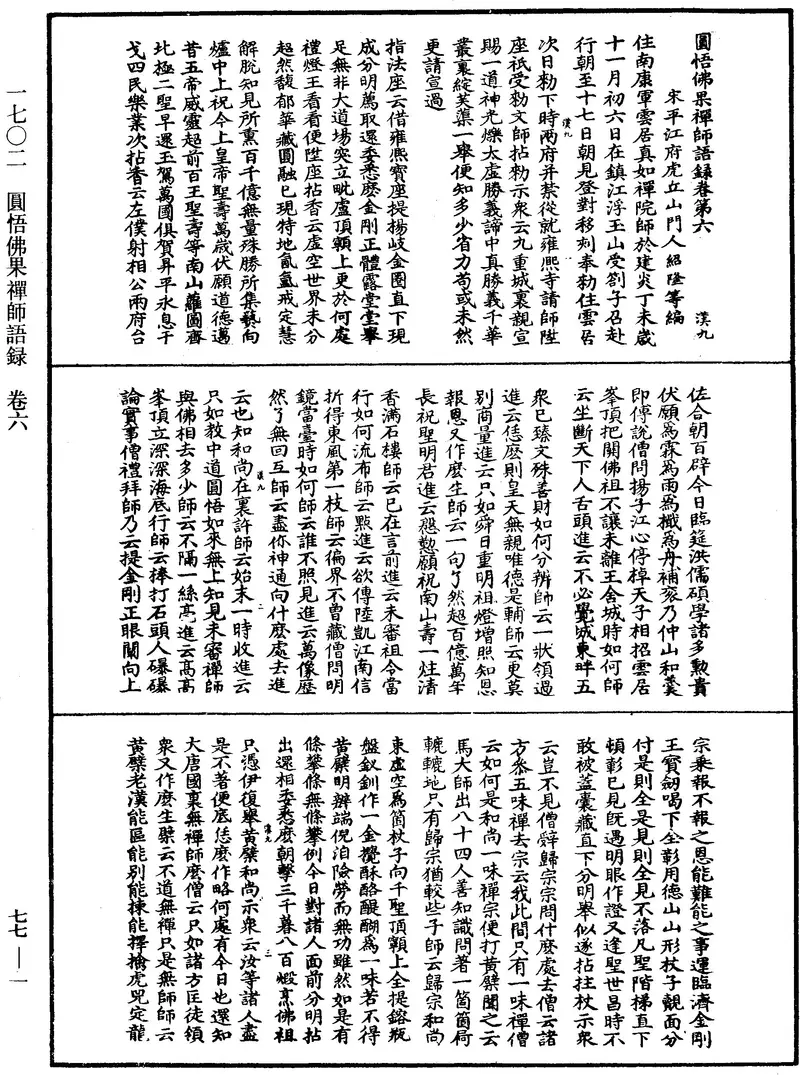 圓悟佛果禪師語錄卷第六　漢九
宋平江府虎丘山門人紹隆等編
住南康軍雲居真如禪院師於建炎丁未歲
十一月初六日在鎮江浮玉山受劄子召赴
行朝至十七日朝見登對移刻奉勑住雲居
次日勑下時兩府并禁從就雍熙寺請師陞
座祇受勑文師拈勑示衆云九重城裏親宣
賜一道神光爍太虛勝義諦中真勝義千華
叢裏綻芙蕖一舉便知多少省力苟或未然
更請宣過
指法座云借雍熙寶座提楊岐金圈直下現
成分明薦取還委悉麽金剛正體露堂堂舉
足無非大道場突立毗盧頂𩕳上更於何處
禮燈王看看便陞座拈香云虛空世界未分
超然馥郁華藏圓融已現特地氤氳戒定慧
解脫知見所熏百千億無量殊勝所集爇向
爐中上祝今上皇帝聖壽萬歲伏願道德邁
昔五帝威靈超前百王聖壽等南山蘿圖齊
北極二聖早還玉駕萬國俱賀昇平永息干
戈四民樂業次拈香云左僕射相公兩府台
佐合朝百辟今日臨筵洪儒碩學諸多勳貴
伏願爲霖爲雨爲檝爲舟補衮乃仲山和羹
即傳說僧問揚子江心停棹天子相招雲居
峯頂把關佛祖不讓未離王舍城時如何師
云坐斷天下人舌頭進云不必覺城東畔五
衆已臻文殊善財如何分辨師云一狀領過
進云恁麽則皇天無親唯德是輔師云更莫
別商量進云只如舜日重明祖燈增照知恩
報恩又作麽生師云一句了然超百億萬年
長祝聖明君進云懇懃願祝南山壽一炷清
香滿石樓師云已在言前進云未審祖令當
行如何流布師云點進云欲傳陸凱江南信
折得東風第一枝師云徧界不曾藏僧問明
鏡當臺時如何師云誰不照見進云萬像歷
然了無回互師云盡你神通向什麽處去進
云也知和尚在裏許師云始末一時收進云
只如教中道圓悟如來無上知見未審禪師
與佛相去多少師云不隔一絲毫進云高高
峯頂立深深海底行師云棒打石頭人嚗嚗
論實事僧禮拜師乃云提金剛正眼闡向上
宗乘報不報之恩能難能之事運臨濟金剛
王寶劒喝下全彰用德山山形杖子覿面分
付是則全是見則全見不落凡聖階梯直下
頓彰已見既遇明眼作證又逢聖世昌時不
敢被蓋囊藏直下分明舉似遂拈拄杖示衆
云豈不見僧辤歸宗宗問什麽處去僧云諸
方叅五味禪去宗云我此間只有一味禪僧
云如何是和尚一味禪宗便打黃檗聞之云
馬大師出八十四人善知識問著一箇箇屙
轆轆地只有歸宗猶較些子師云歸宗和尚
東虛空爲箇杖子向千聖頂𩕳上全提鎔瓶
盤釵釧作一金攪酥酪醍醐爲一味若不得
黃檗明辨端倪洎險勞而無功雖然如是有
條攀條無條攀例今日對諸人面前分明拈
出還相委悉麽朝擊三千暮八百煅烹佛祖
只憑伊復舉黃檗和尚示衆云汝等諸人盡
是不著便底恁麽作略何處有今日也還知
大唐國裏無禪師麽僧云只如諸方匡徒領
衆又作麽生檗云不道無禪只是無師師云
黃檗老漢能區能別能揀能擇擒虎兕定龍
一七〇二　圓悟佛果禪師語録　卷六
七七—一